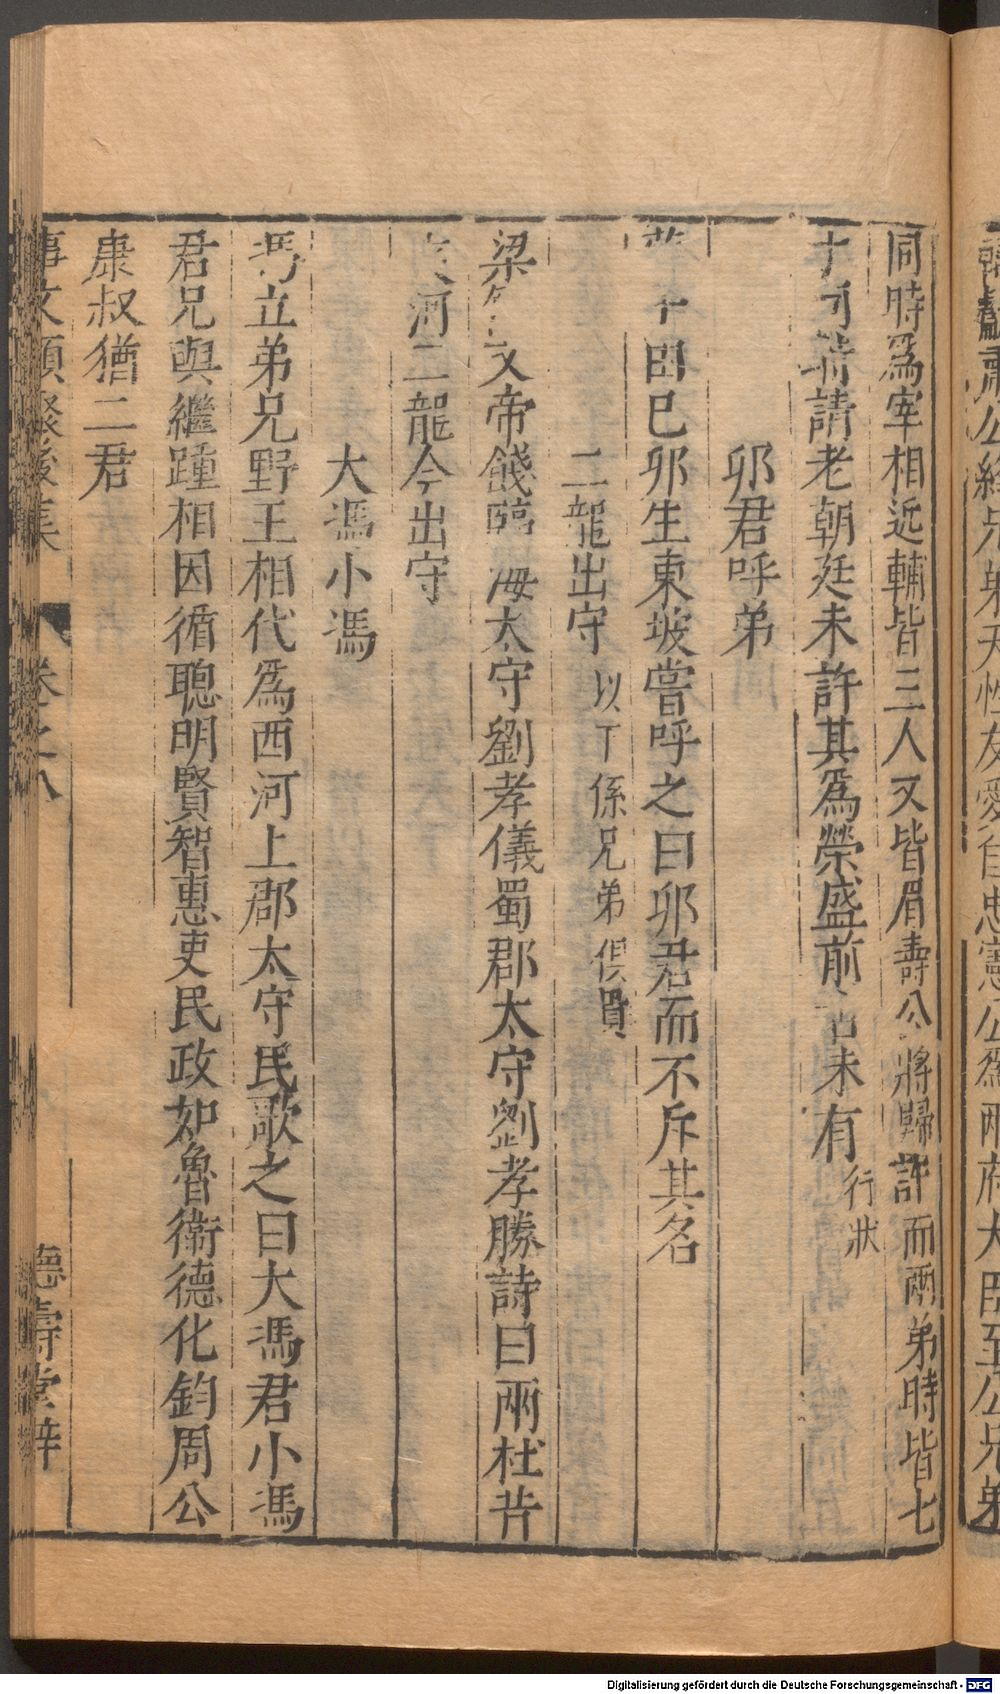 韓獻肅公絳兄弟天性友愛自忠憲公為兩府大臣至公兄弟
同時爲宰相近輔皆三人又皆眉壽公將歸許而兩弟時皆七
請老朝廷未許其爲榮盛前未有行狀
夘君呼弟
蘇子由己夘生東坡嘗呼之曰夘君而不斥其名
二龍出守以下係兄弟俱貴
梁文帝餞臨海太守劉孝儀蜀郡太守劉孝勝詩曰兩杜昔
河二龍今出守
大馮小馮
馮立弟兄野王相代爲西河上郡太守民歌之曰大馮君小馮
君兄與繼踵相因循聰明賢智惠吏民政如魯衞德化鈞周公
康叔猶二君
事文類聚後集 卷之八 德壽堂梓
Digitalisierung gefördert durch die Deutsche Forschungsgemeinschaft - DFG